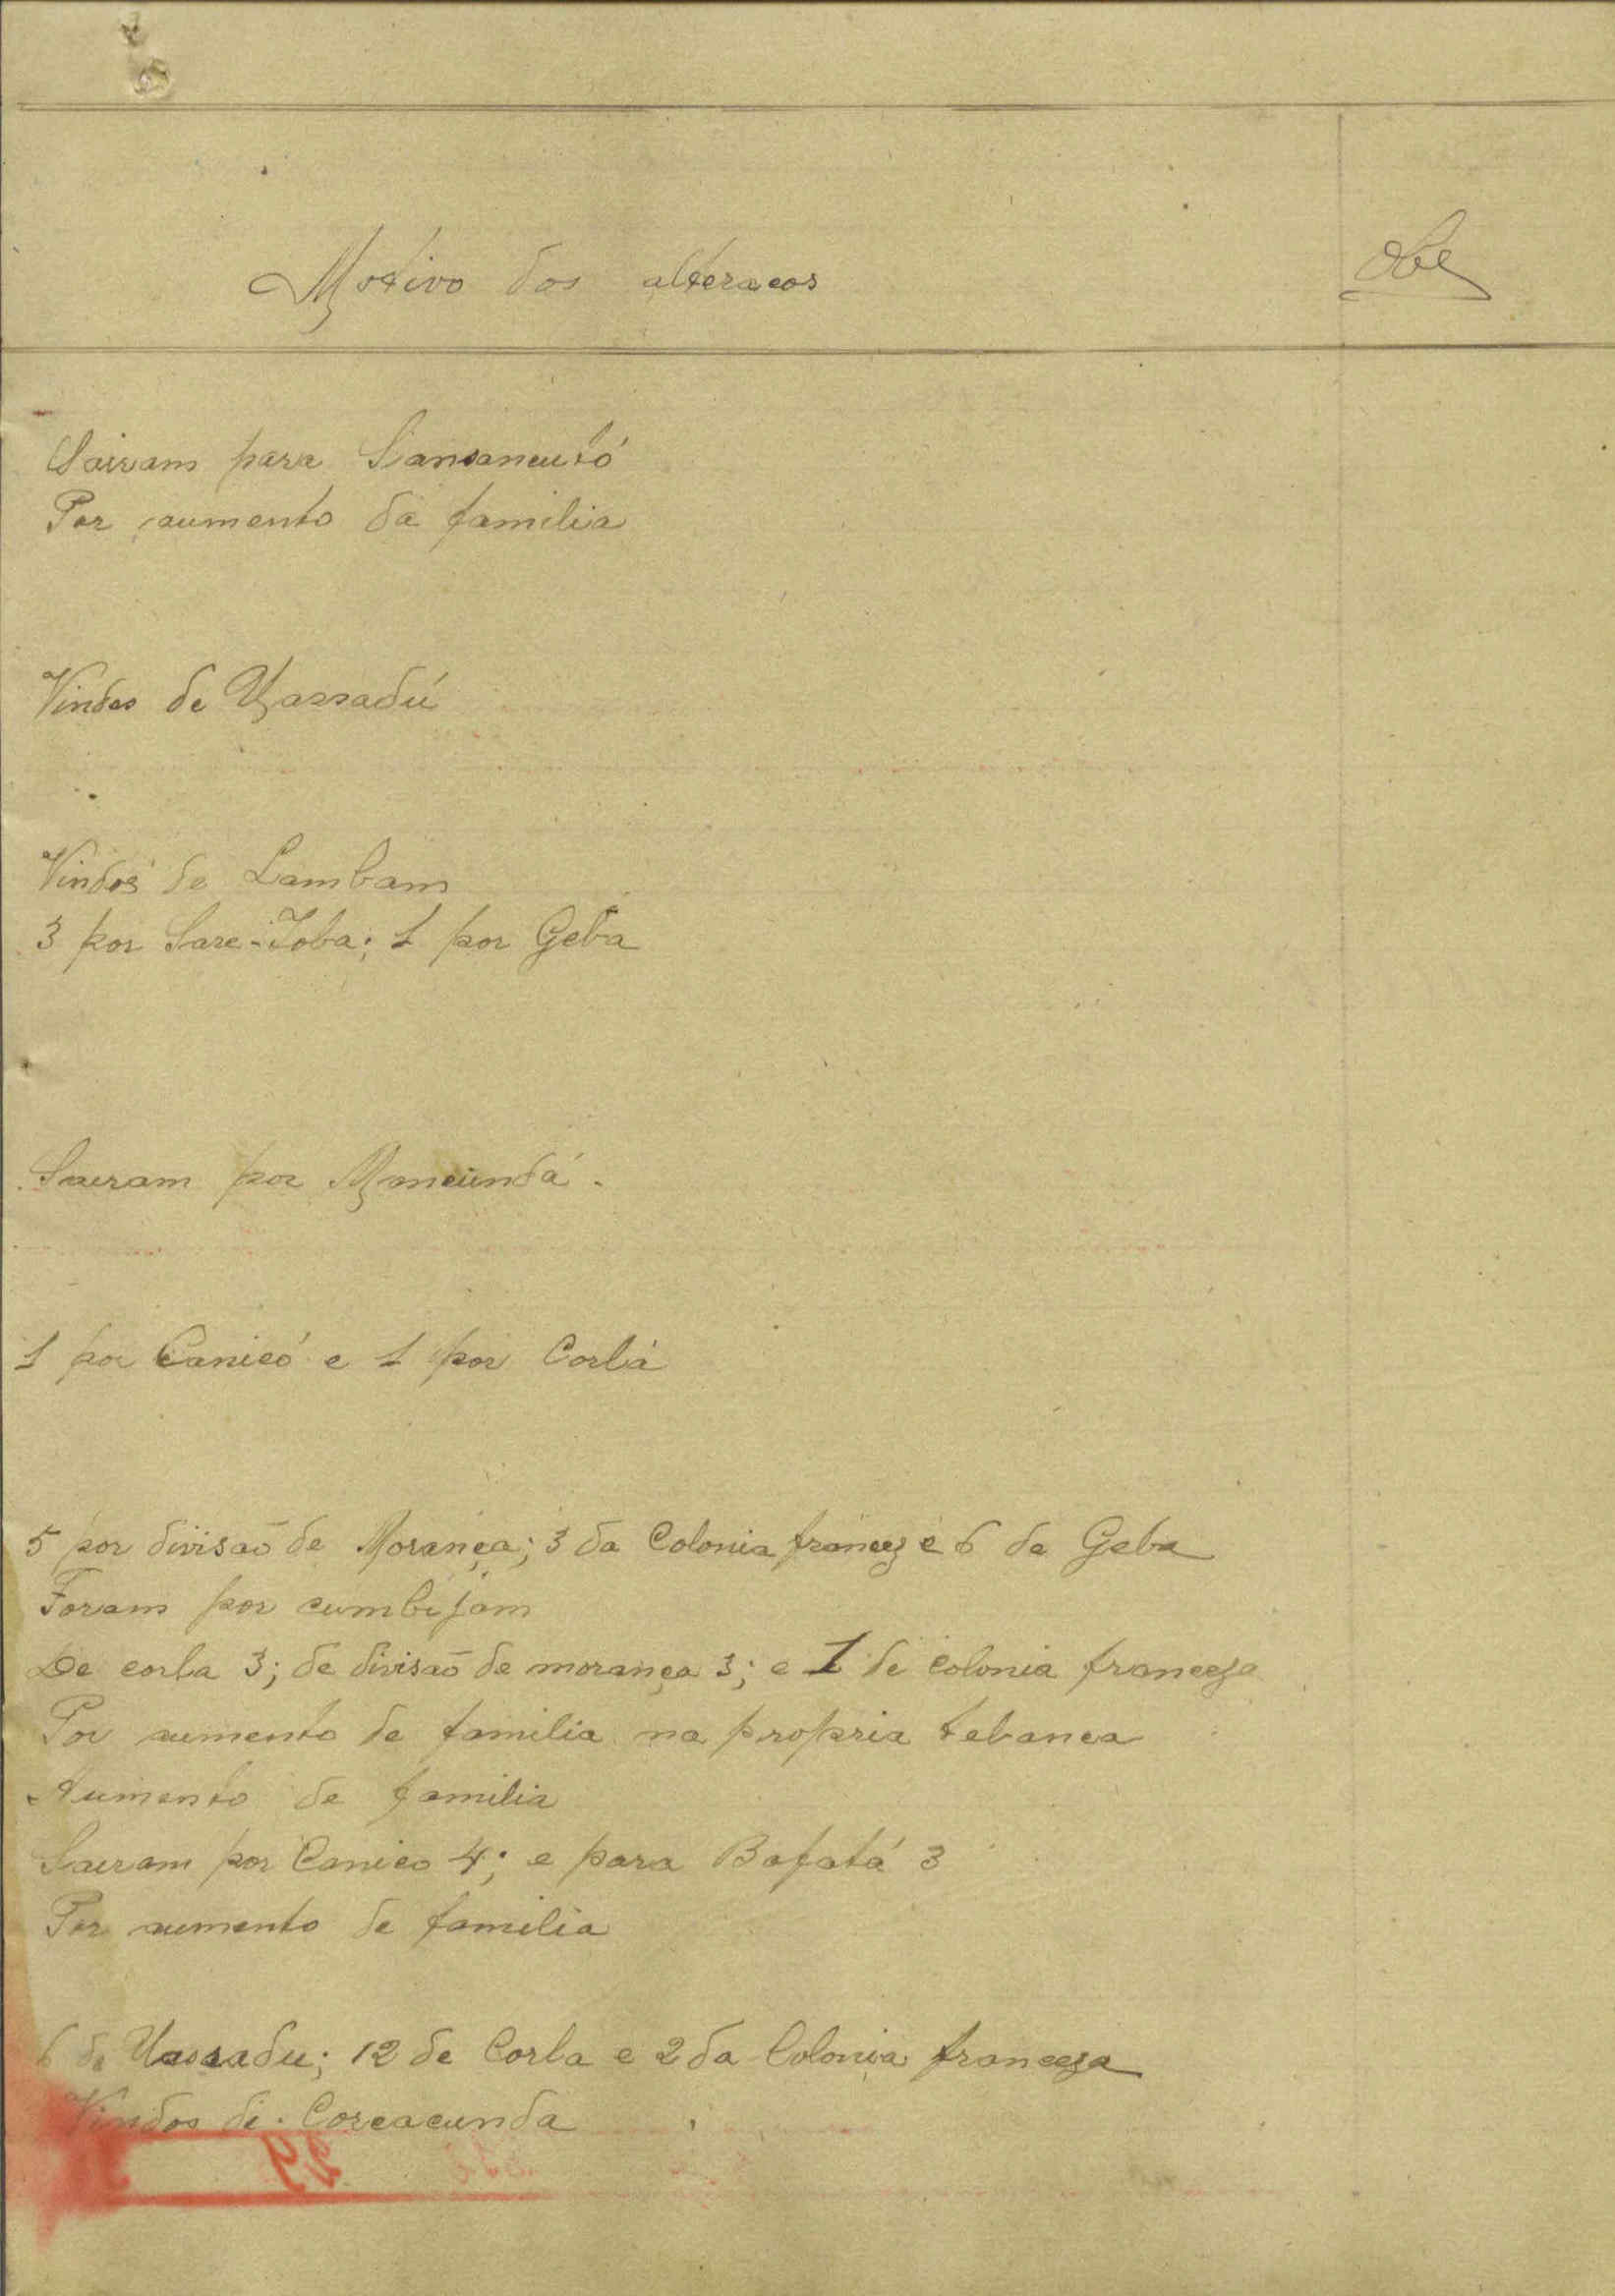 Motivo dos alteracos
Obs
Sairam para Sansancutó
Por aumento da familia
Vindos de Uassadú
Vindos de Lambam
3 por Sare-Joba; 1 por Geba
Sairam por Mancundá.
1 por Canicó e 1 por Corlá
5 por divisaõ de Morança; 3 da Colonia francez e 6 de Geba
Foram por cumbijam
De corla 3; de divisaõ de morança 3; e 1 de colonia franceza
Por aumento de familia na propria tabanca
Aumento de familia
Sairam por Canico 4; e para Bafatá 3
Por aumento de familia
6 de Uassadu; 12 de Corla e 2 da Colonia franceza
Vindos de Coreacunda
29